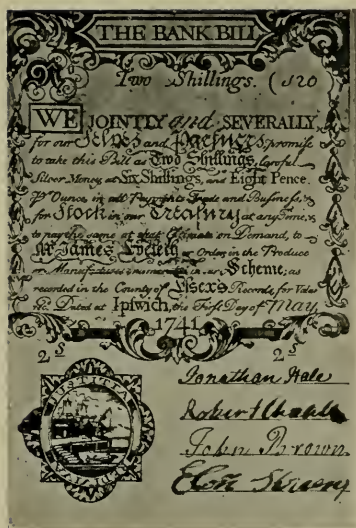 THE BANK BILL
Two Shillings. (120
WE JOINTLY and SEVERALLY
for our Selves and Partners, promise
to take this Bill as Two Shillings, Lawful
Silver Money, at Six Shillings, and Eight Pence.
Ounce, in all Payments, Trade and Business, &
for Stock in our Treasury at any Time, &
to pay the same at that Estimate on Demand, to
Mr James or Order, in the Produce
or Manufactures in our Scheme; as
recorded in the County of Essex's Records, for Value
rec. Dated at Ipswich, the First Day of May,
1741
2 S 2 S
Jonathan Hale
Robert
John Brown